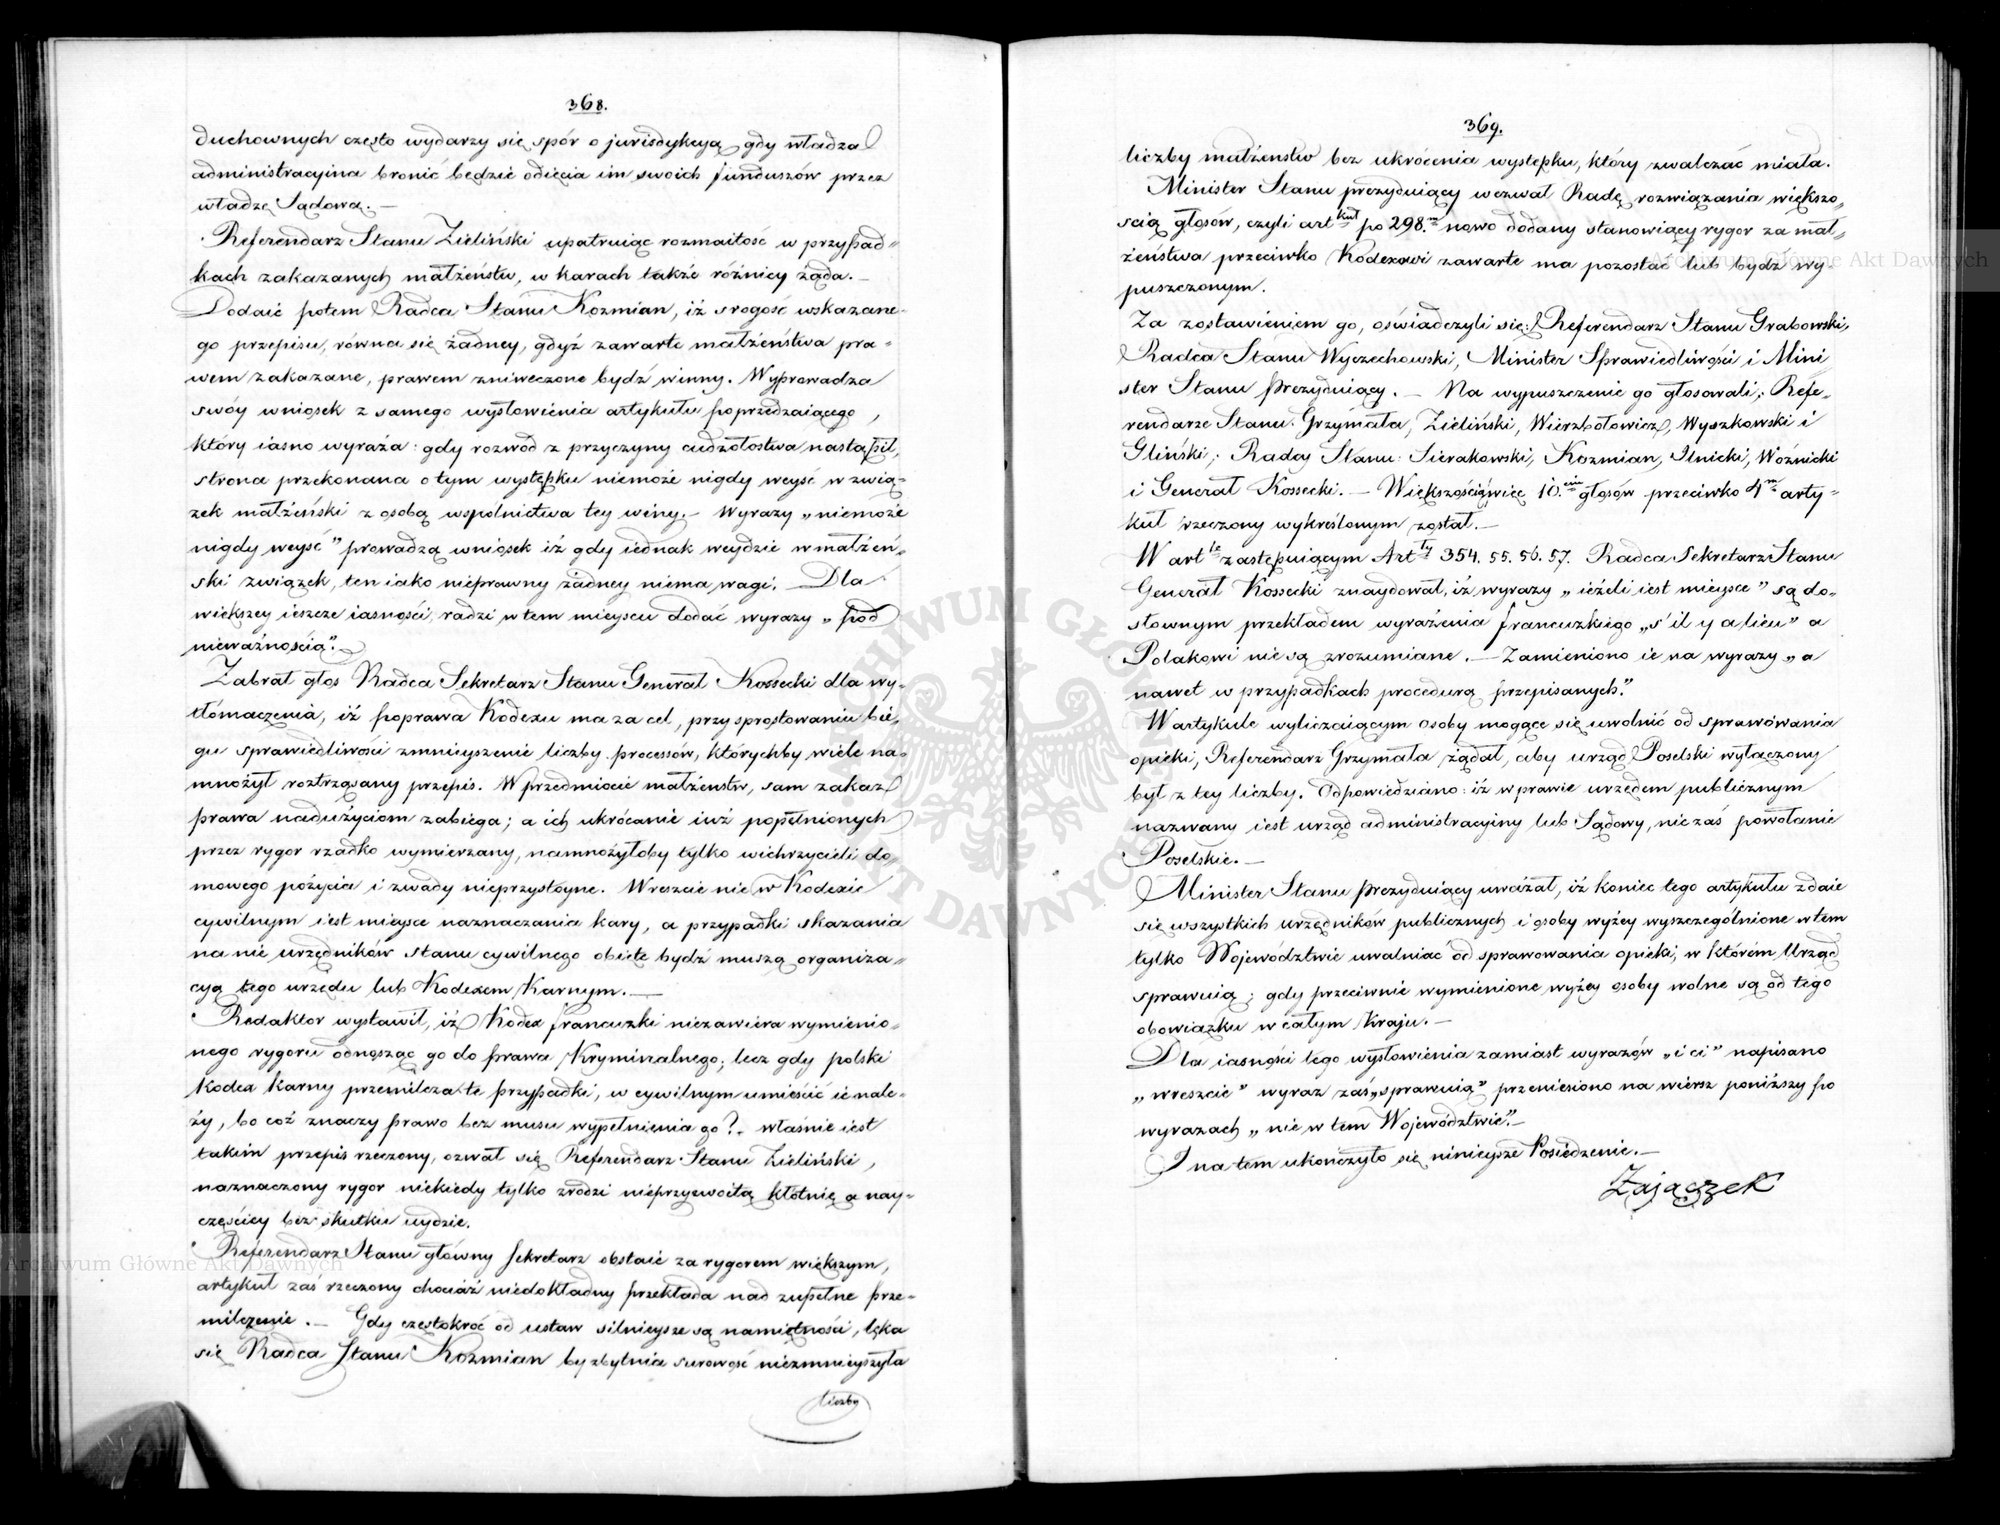 368.
duchownych często wydarzy się spór o jurisdykcyą gdy władza
administracyina bronić będzie odięcia im swoich funduszów przez
władzę Sądową. —
Referendarz Stanu Zieliński upatruiąc rozmaitość w przypad-
kach zakazanych małżeństw, w karach także różnicy żąda. —
Dodaie potem Radca Stanu Kozmian, iż srogość wskazane-
go przepisu, równa się żadney, gdyż zawarte małżeństwa pra-
wem zakazane, prawem zniweczone bydź winny. Wyprowadza
swóy wniosek z samego wysłowienia artykułu poprzedzaiącego,
który iasno wyraża: gdy rozwód z przyczyny cudzołostwa nastąpił,
strona przekonana o tym występku niemoże nigdy weyść w zwią-
zek małżeński z osobą wspólnictwa tey winy. — Wyrazy „niemoże
nigdy weyść” prowadzą wniosek iż gdy iednak weydzie w małżeń-
ski związek, ten iako nieprawny żadney niema wagi. — Dla
większey ieszcze iasności, radzi w tem mieyscu dodać wyrazy „pod
nieważnością”. —
Zabrał głos Radca Sekretarz Stanu Generał Kossecki dla wy-
tłómaczenia, iż poprawa Kodexu ma za cel, przy sprostowaniu bie-
gu sprawiedliwości zmnieyszenie liczby processów, którychby wiele na-
mnożył roztrząsany przepis. W przedmiocie małżeństw, sam zakaz
prawa nadużyciom zabiega; a ich ukrócanie iuż popełnionych
przez rygor rzadko wymierzany, namnożyłoby tylko wichrzycieli do-
mowego pożycia i zwady nieprzystoyne. Wreszcie nie w Kodexie
cywilnym iest mieysce naznaczania kary, a przypadki skazania
na nie urzędników stanu cywilnego obięte bydź muszą organiza-
cyą tego urzędu lub Kodexem Karnym. —
Redaktor wystawił, iż Kodex francuzki niezawiera wymienio-
nego rygoru odnosząc go do prawa Kryminalnego; lecz gdy polski
Kodex Karny przemilcza te przypadki, w cywilnym umieścić ie nale-
ży, bo coż znaczy prawo bez musu wypełnienia go? — właśnie iest
takim przepis rzeczony, ozwał się Referendarz Stanu Zieliński,
naznaczony rygor niekiedy tylko zrodzi nieprzyzwoitą kłótnię a nay-
częściey bez skutku uydzie.
Referendarz Stanu główny sekretarz obstaie za rygorem większym,
artykuł zaś rzeczony chociaż niedokładny przekłada nad zupełne prze-
milczenie. — Gdy częstokroć od ustaw silnieysze są namiętności, lęka
się Radca Stanu Kozmian by zbytnia surowość niezmnieyszyła
liczby
369.
liczby małżeństw bez ukrócenia występku, który zwalczać miała.
Minister Stanu prezyduiący wezwał Radę rozwiązania większo-
scią głosów, czyli artkuł po 298.m nowo dodany stanowiący rygor za mał-
żeństwa przeciwko Kodexowi zawarte ma pozostać lub bydź wy-
puszczonym.
Za zostawieniem go, oświadczyli się: Referendarz Stanu Grabowski,
Radca Stanu Wyczechowski, Minister Sprawiedliwości i Mini
ster Stanu prezyduiący. — Na wypuszczenie go głosowali; Refe-
rendarze Stanu: Grzymała, Zieliński, Wierzbołowicz, Wyszkowski i
Gliński; Radcy Stanu: Sierakowski, Kozmian, Ilnicki, Woźnicki
i Generał Kossecki. — Większością więc 10.ciu głosów przeciwko 4m arty-
kuł rzeczony wykreślonym został. —
W artle zastępuiącym Artty 354. 55. 56. 57. Radca Sekretarz Stanu
Generał Kossecki znaydował, iż wyrazy „ieżeli iest mieysce” są do-
słownym przekładem wyrażenia francuzkiego „s'il y a lieu” a
Polakowi nie są zrozumiane. — Zamieniono ie na wyrazy „a
nawet w przypadkach procedurą przepisanych.”
W artykule wyliczaiącym osoby mogące się uwolnić od sprawowania
opieki, Referendarz Grzymała żądał, aby urząd Poselski wyłączony
był z tey liczby. Odpowiedziano: iż w prawie urzędem publicznym
nazwany iest urząd administracyiny lub Sądowy, nie zaś powołanie
Poselskie. —
Minister Stanu prezyduiący uważał, iż koniec tego artykułu zdaie
się wszystkich urzędników publicznych i osoby wyżey wyszczególnione w tem
tylko Województwie uwalniać od sprawowania opieki, w którem Urząd
sprawuią; gdy przeciwnie wymienione wyżey osoby wolne są od tego
obowiązku w całym Kraju. —
Dla iasności tego wysłowienia zamiast wyrazów „i ci” napisano
„wreszcie” wyraz zaś „sprawuią” przeniesiono na wiersz poniższy po
wyrazach „nie w tem Województwie”. —
I na tem ukończyło się ninieysze Posiedzenie. —
Zajączek
Archiwum Główne Akt Dawnych
Archiwum Główne Akt Dawnych
ARCHIWUM GŁÓWNE AKT DAWNYCH